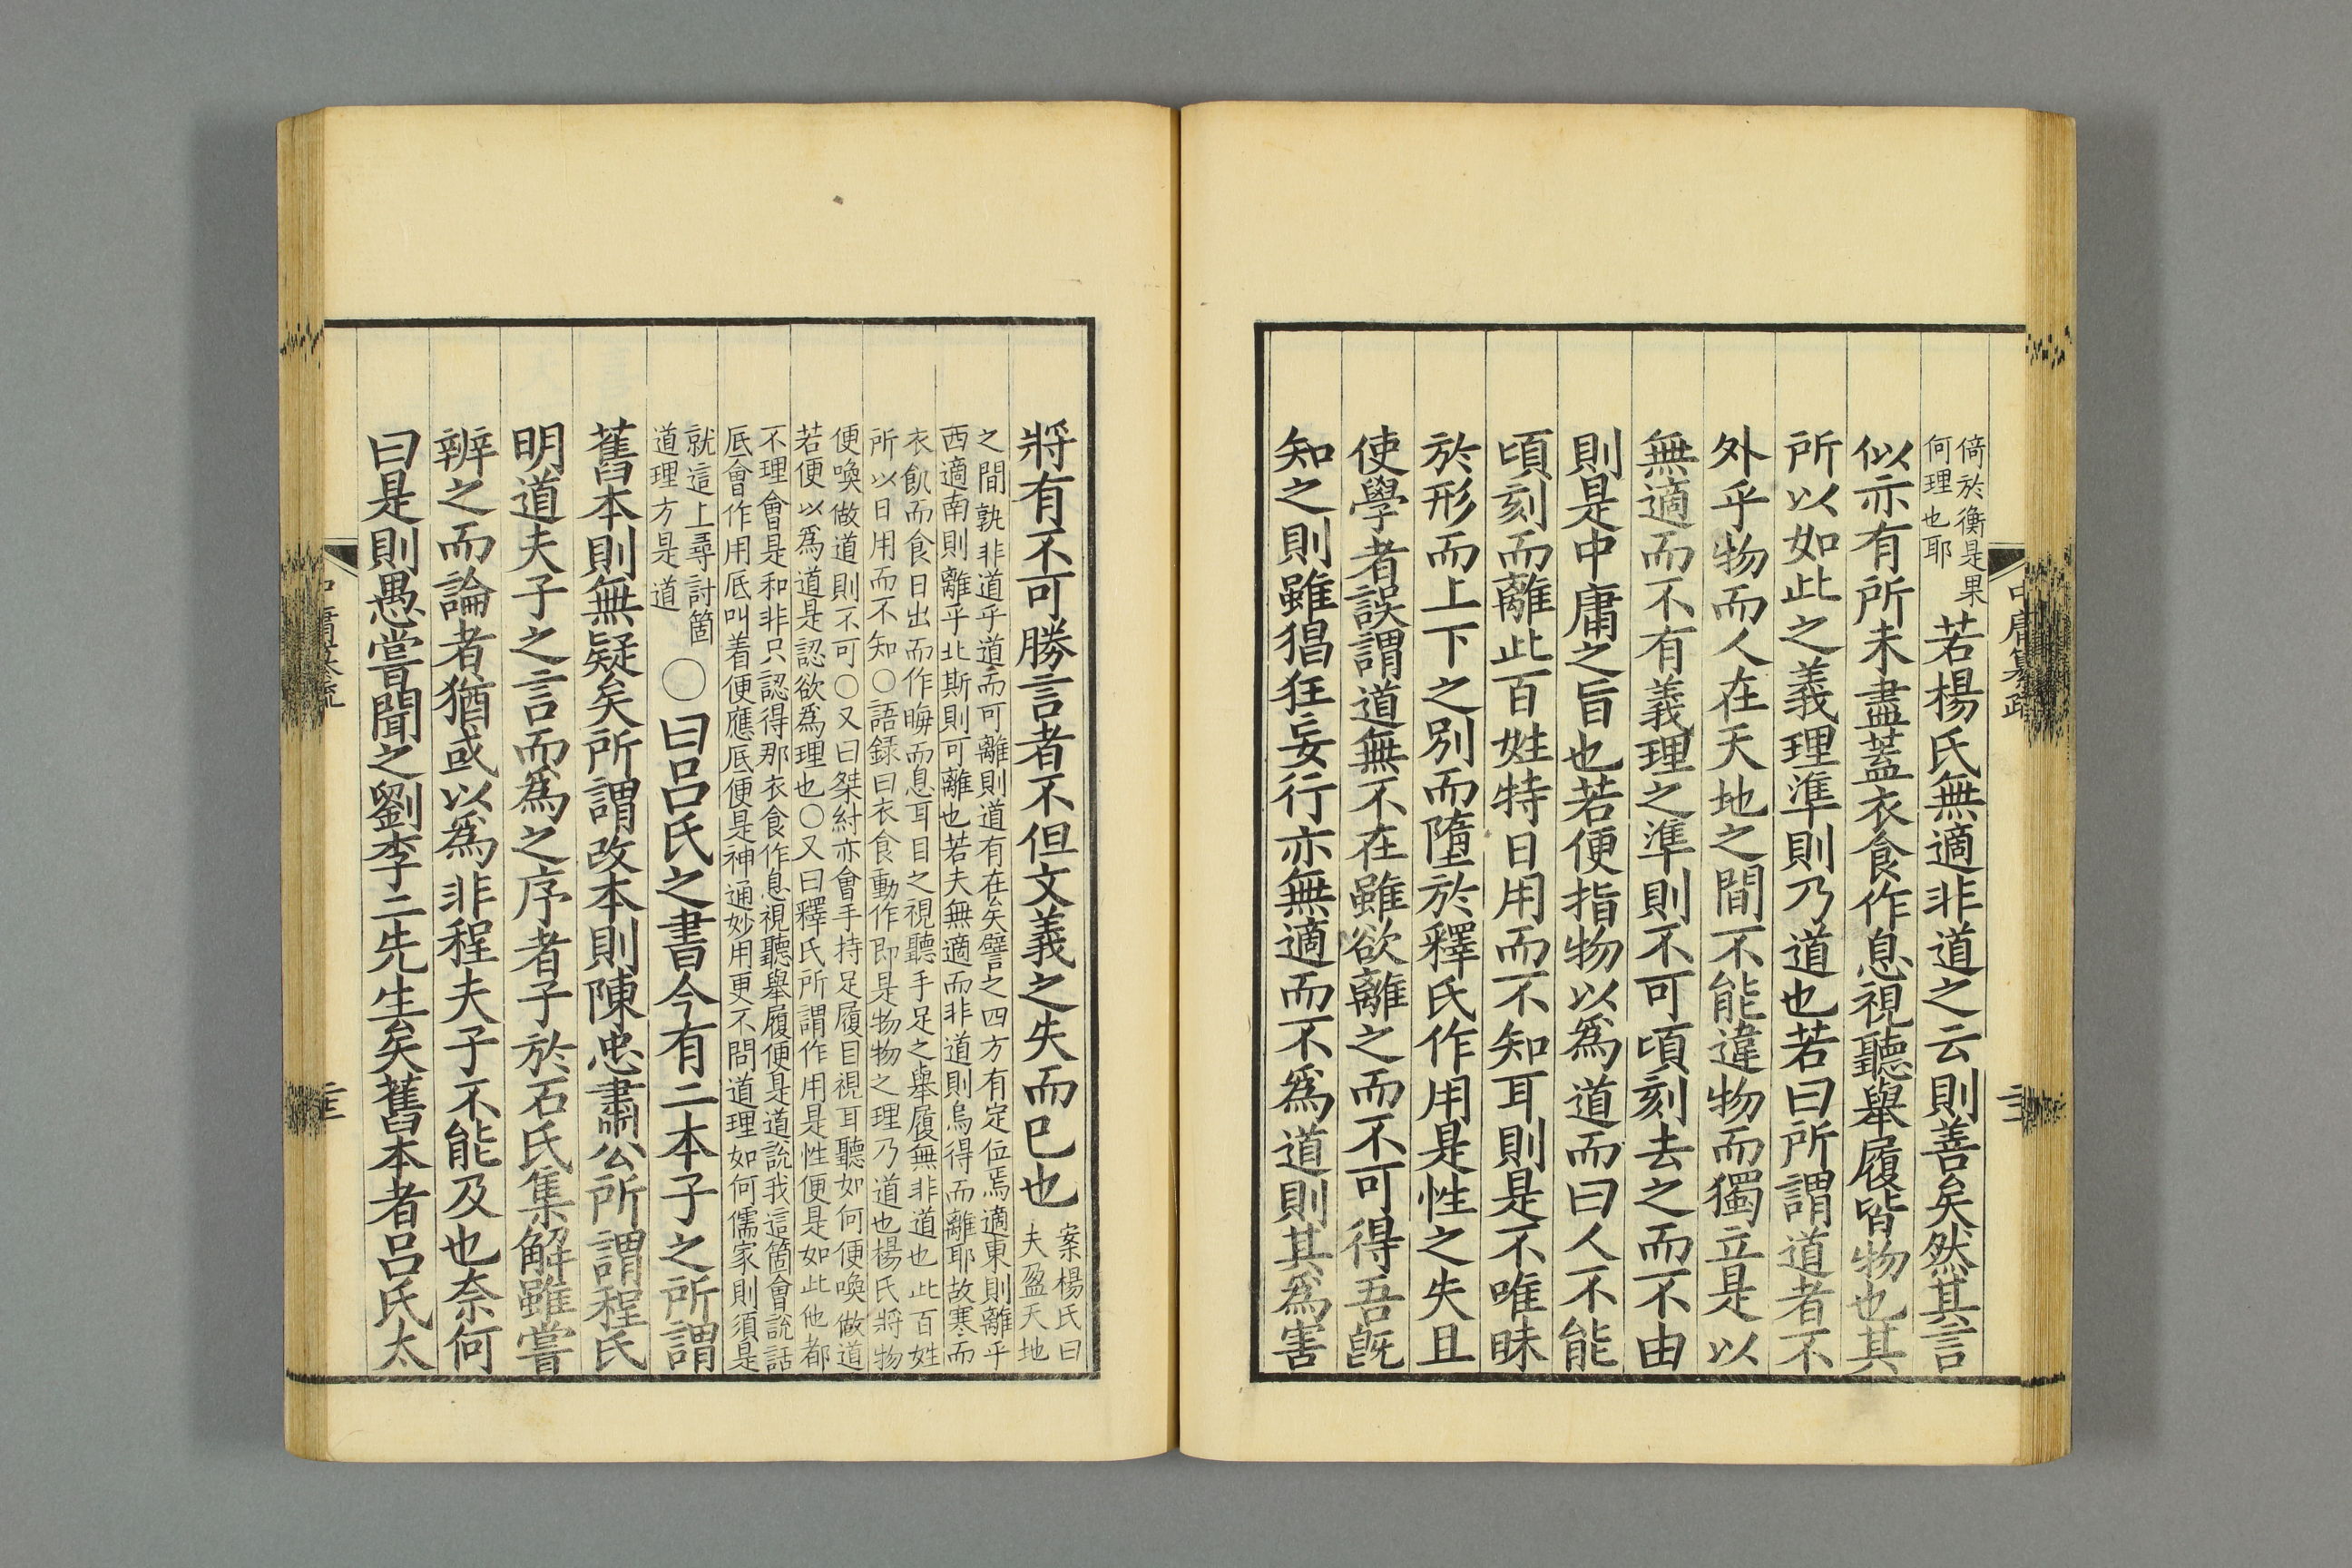 倚於衡是果
何理也耶
若楊氏無適非道之云則善矣然其言
似亦有所未盡蓋衣食作息視聽舉履皆物也其
所以如此之義理準則乃道也若曰所謂道者不
外乎物而人在天地之間不能違物而獨立是以
無適而不有義理之準則不可頃刻去之而不由
則是中庸之旨也若便指物以爲道而曰人不能
頃刻而離此百姓特日用而不知耳則是不唯昧
於形而上下之別而墮於釋氏作用是性之失且
使學者誤謂道無不在雖欲離之而不可得吾旣
知之則雖猖狂妄行亦無適而不爲道則其爲害
將有不可勝言者不但文義之失而已也
案楊氏曰
夫盈天地
之間孰非道乎道而可離則道有在矣譬之四方有定位焉適東則離乎
西適南則離乎北斯則可離也若夫無適而非道則烏得而離耶故寒而
衣飢而食日出而作晦而息耳目之視聽手足之舉履無非道也此百姓
所以日用而不知○語録曰衣食動作即是物物之理乃道也楊氏將物
便喚做道則不可○又曰桀紂亦會手持足履目視耳聽如何便喚做道
若便以爲道是認欲爲理也○又曰釋氏所謂作用是性便是如此他都
不理會是和非只認得那衣食作息視聽舉履便是道說我這箇會說話
底會作用底叫着便應底便是神通妙用更不問道理如何儒家則須是
就這上尋討箇
道理方是道
○曰呂氏之書今有二本子之所謂
舊本則無疑矣所謂改本則陳忠肅公所謂程氏
明道夫子之言而爲之序者子於石氏集解雖嘗
辨之而論者猶或以爲非程夫子不能及也奈何
曰是則愚嘗聞之劉李二先生矣舊本者呂氏太